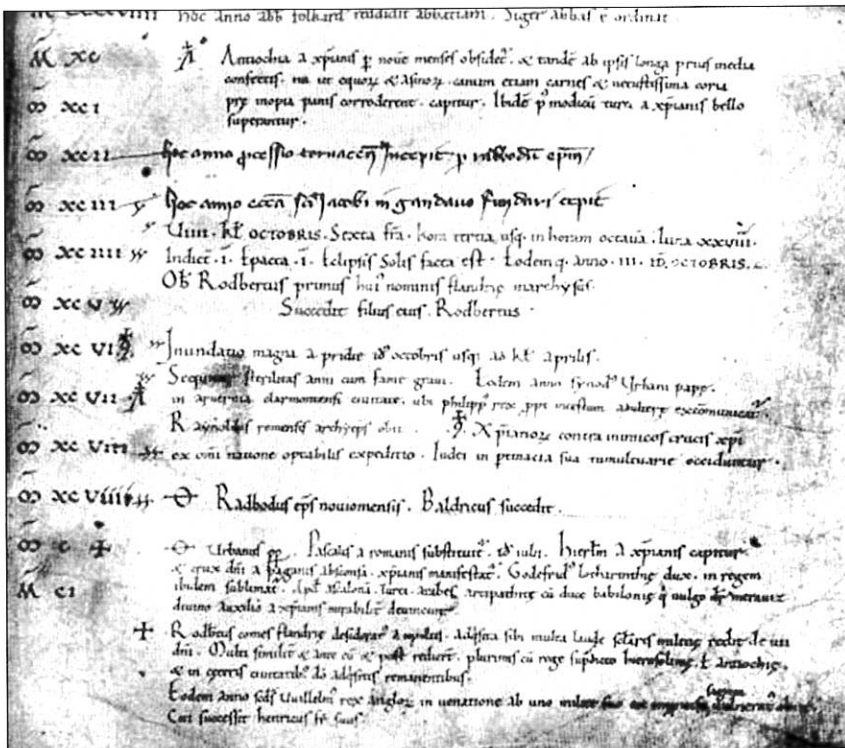 hoc anno abb folkard reddidit abbatiam. Siger abbas ē ordinat
M̄ XC Antiochia a xp̄ianis p̱ nouē menses obsideṫ. & tandē ab ipsis longa prius media
confectis. na ut equoꝝ & asinoꝝ. canum etiam carnes & uetustissima coria
ꝏ XC I p̱ inopia panis corroderent. capitur. Ibidē p̱ modicū turci a xp̄ianis bello
superantur.
ꝏ XC II hoc anno p̱cessio tornaceñ incepit p̱ rabbodū ep̄m
ꝏ XC III hoc anno eccl̄a sc̄i Jacobi in gandauo fundari cepit
VIIII. kl̄ OCTOBRIS. Sexta fr̄a. hora tertia usq. in horam octauā. luna XXVIII.
ꝏ XC IIII Indict. I. Epacta. I. Eclipsis Solis facta est. Eodem q. anno. III. ID. OCTOBRIS.
Ob̄ Rodbertus primus hui' nominis flandrię marchysus.
ꝏ XC V Succedit filius eius. Rodbertus.
ꝏ XC VI Inundatio magna a pridie id' octobris usq; ad kl̄ aprilis.
Sequitur sterilitas anni cum fame graui. Eodem anno synod' Urbani papę.
ꝏ XC VII in aruernia claromontensi ciuitate. ubi philipp' rex ppt incestum adulterii excōmunicat'.
Raynoldus remensis archyep̄s obiit. Xp̄ianoꝝ contra inimicos crucis xp̄i
ꝏ XC VIII ex om̄i natione optabilis expeditio. Iudei in pertinacia sua tumultuarie occiduntur.
ꝏ XC VIIII Radbodus ep̄s nouiomensis. Baldricus succedit.
ꝏ C Urbanus pp̄. Pascalis a romanis substituit'. id' iulii. Hierlm̄ a xp̄ianis capitur
& crux dn̄i a paganis absconsa. xp̄ianis manifestat'. Godefrid' lotharingię dux. in regem
M̄ CI ibidem sublimat'. Apd' ascalonā. turci. arabes cū duce babilonię q uulgo
diuino auxilio a xp̄ianis mirabilit̄ deuincunt'
Rodbertus comes flandrię desiderat' a multis. adq̄sita sibi multa laude redit de uia
dn̄i. Multi similit̄ & ante eū & post redierunt. plurimis cū rege sup̄dicto hierosolimę. & antiochię.
& in ceteris ciuitatib' adq̄sitis remanentibus.
Eodem anno scd's Uuillelm' rex angloꝝ in uenatione ab uno milite suo sagitta uulnerat' obiit.
Cui successit henricus fr̄ suus.